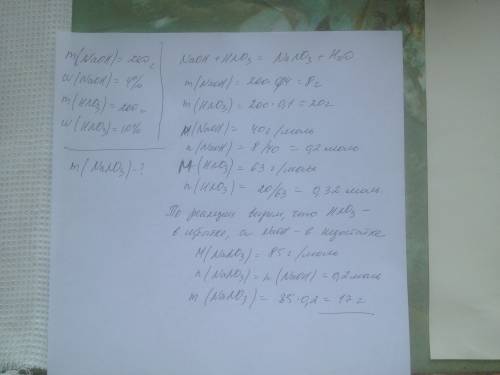 m(NaOH) = 200г
ω(NaOH) = 4%
m(HNO3) = 200г
ω(HNO3) = 10%
m(NaNO3) - ?
NaOH + HNO3 = NaNO3 + H2O
m(NaOH) = 200·0,04 = 8г
m(HNO3) = 200·0,1 = 20г
M(NaOH) = 40г/моль
n(NaOH) = 8/40 = 0,2 моль
M(HNO3) = 63 г/моль
n(HNO3) = 20/63 = 0,32 моль.
По реакции видим, что HNO3 -
в избытке, а NaOH - в недостатке
M(NaNO3) = 85 г/моль
n(NaNO3) = n(NaOH) = 0,2 моль
m(NaNO3) = 85·0,2 = 17г